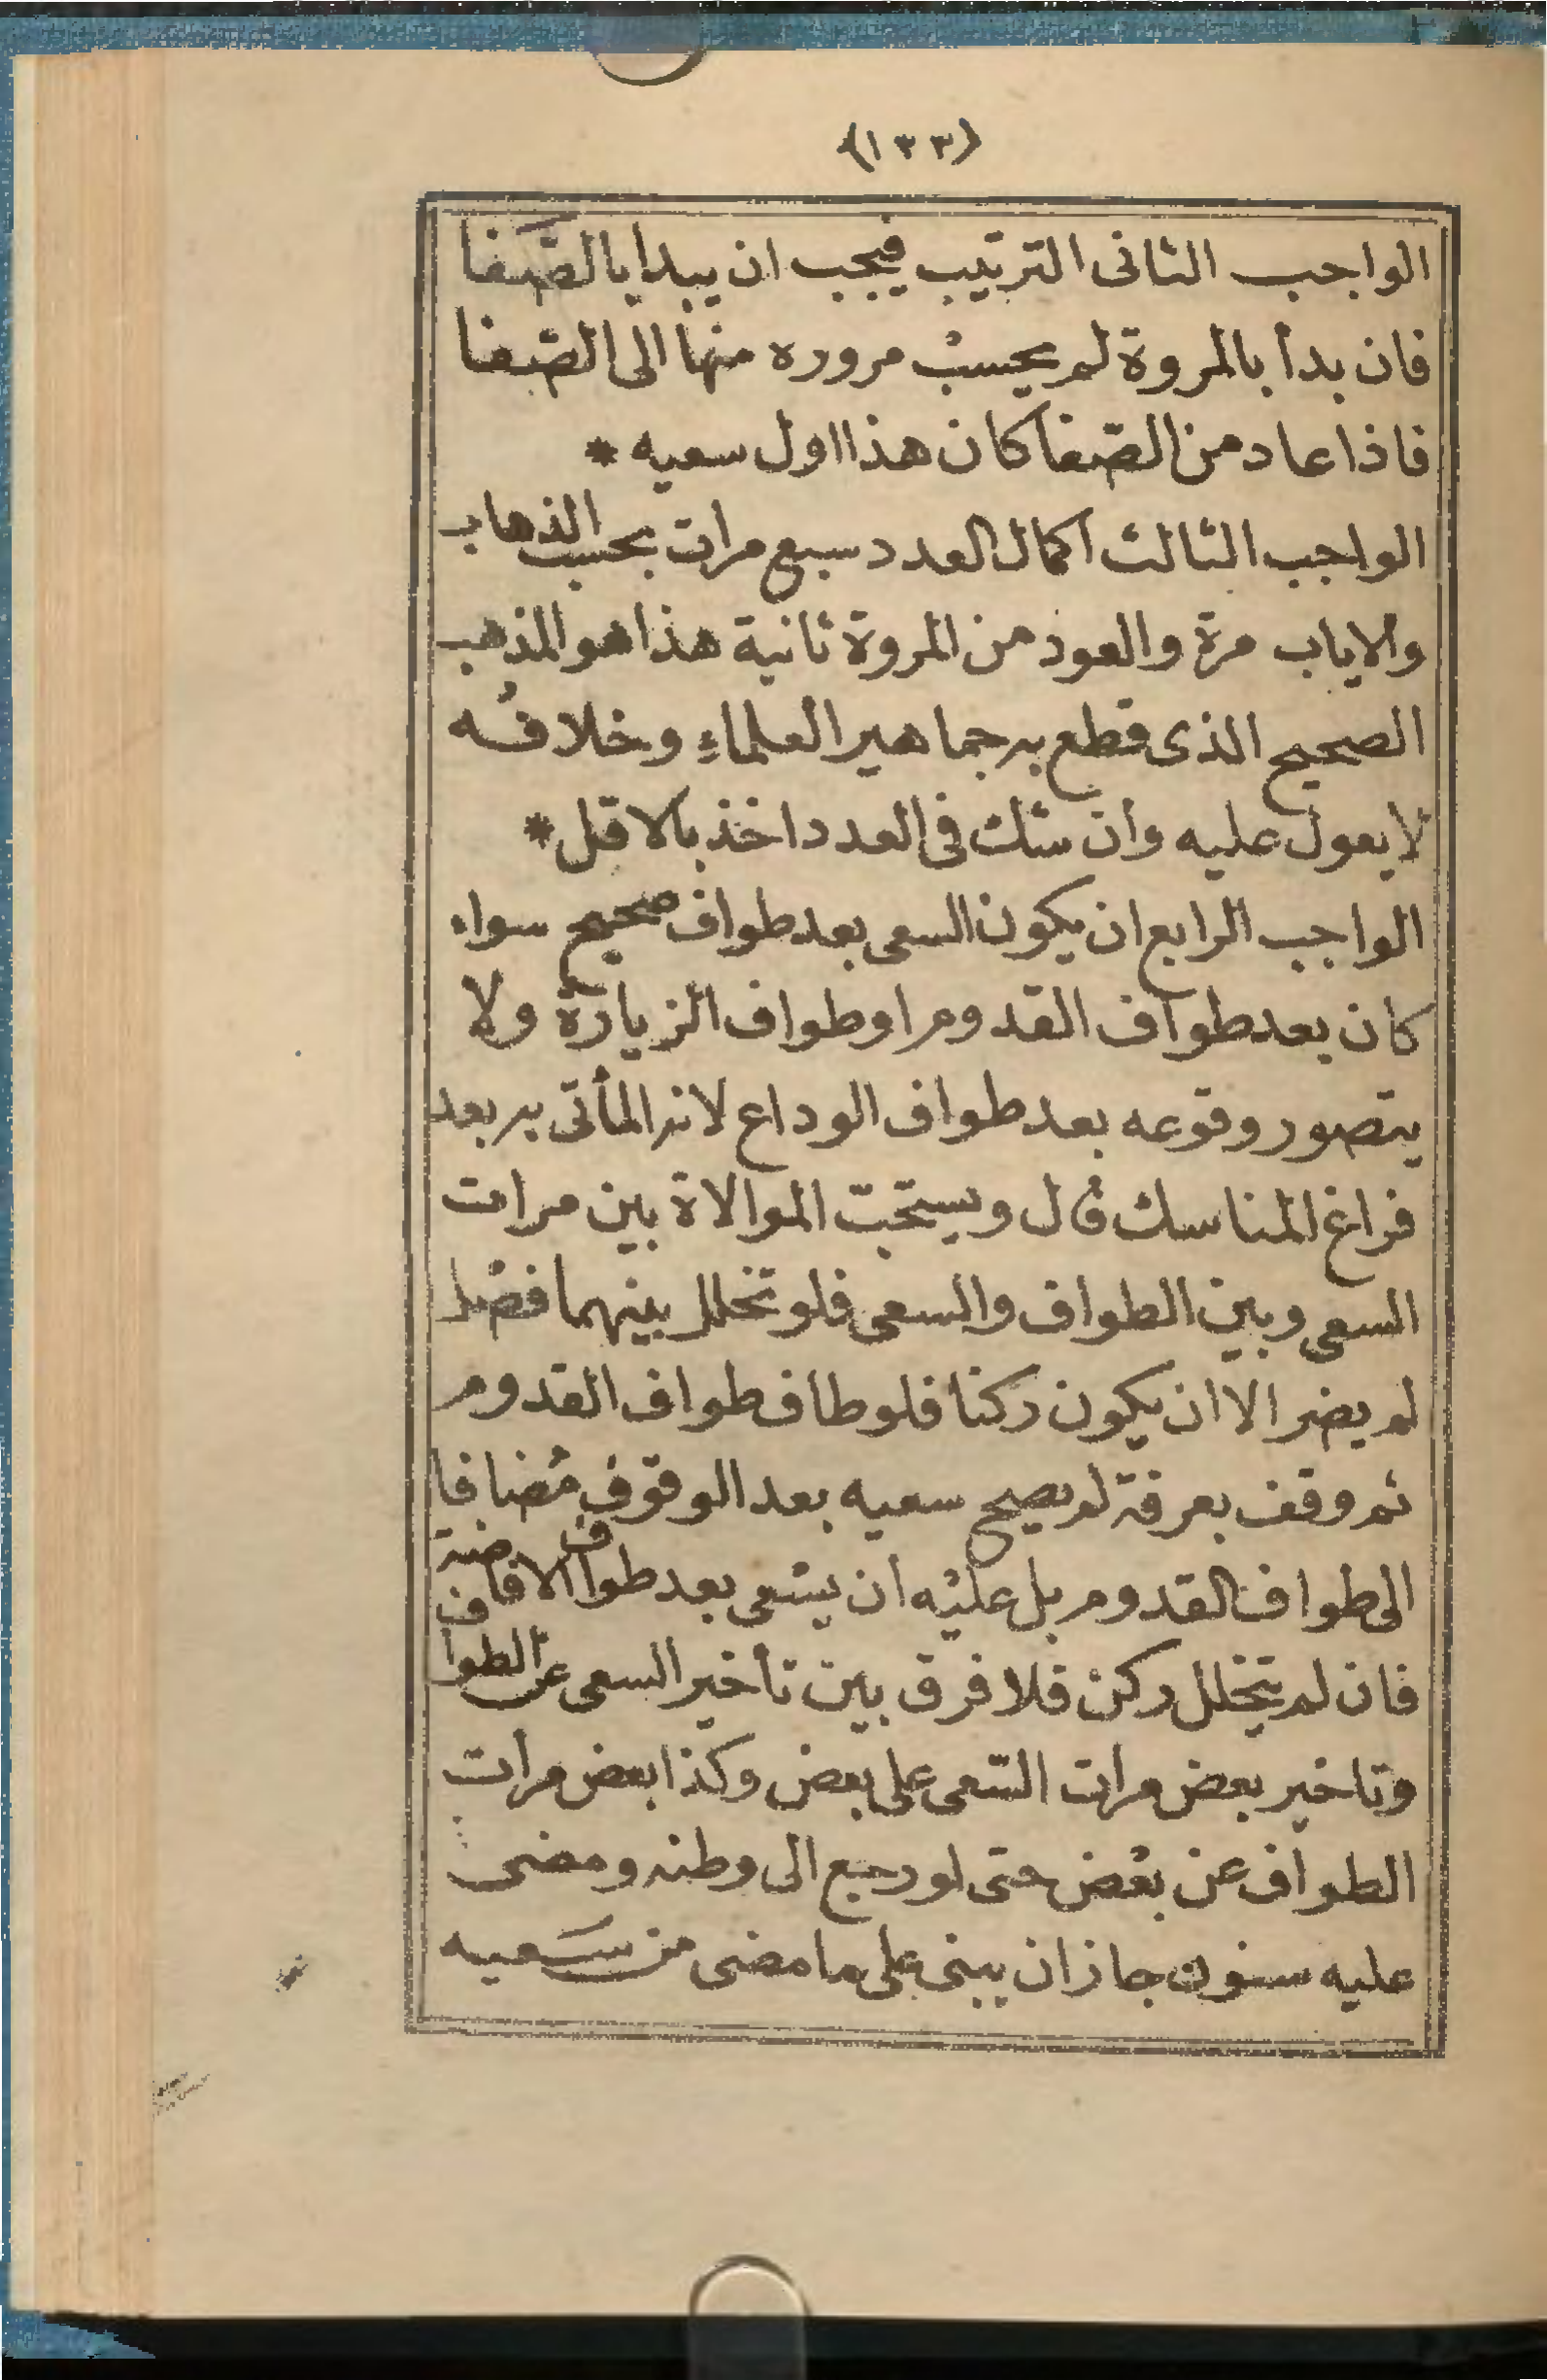 (١٣٣)
الواجب الثانى الترتيب فيجب ان يبدا بالصَّفا
فان بدأ بالمروة لم يحسب مروره منها الى الصّفا
فاذا عاد من الصّفا كان هذا اول سعيه *
الواجب الثالث اكمال العدد سبع مرات بحسب الذهاب
والاياب مرة والعود من المروة ثانية هذا هو المذهب
الصحيح الذى قطع به جماهير العلماءِ وخلافُه
لا يعول عليه وان شك فى العدد اخذ بالاقل *
الواجب الرابع ان يكون السعى بعد طواف صحيح سواء
كان بعد طواف القدوم او طواف الزيارة ولا
يتصور وقوعه بعد طواف الوداع لانه المأتى به بعد
فراغ المناسك قال ويستحبّ الموالاة بين مرات
السعى وبين الطواف والسعى فلو تخلل بينهما فصْل
لم يضر الا ان يكون ركنا فلو طاف طواف القدوم
ثم وقف بعرفة لم يصح سعيه بعد الوقوف مُضافا
الى طواف القدوم بل عليْه ان يسْعى بعد طواف الافاضة
فان لم يتخلل ركن فلا فرق بين تأخير السعى عن الطواف
وتاخير بعض مرات السّعى على بعض وكذا بعض مرات
الطواف عن بعْض حتى لو رجع الى وطنه ومضى
عليه سنون جاز ان يبنى على ما مضى من سَعيه